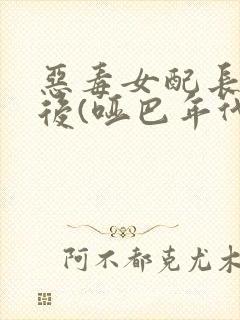 惡毒女配長
後(啞巴年代
阿不都克尤木